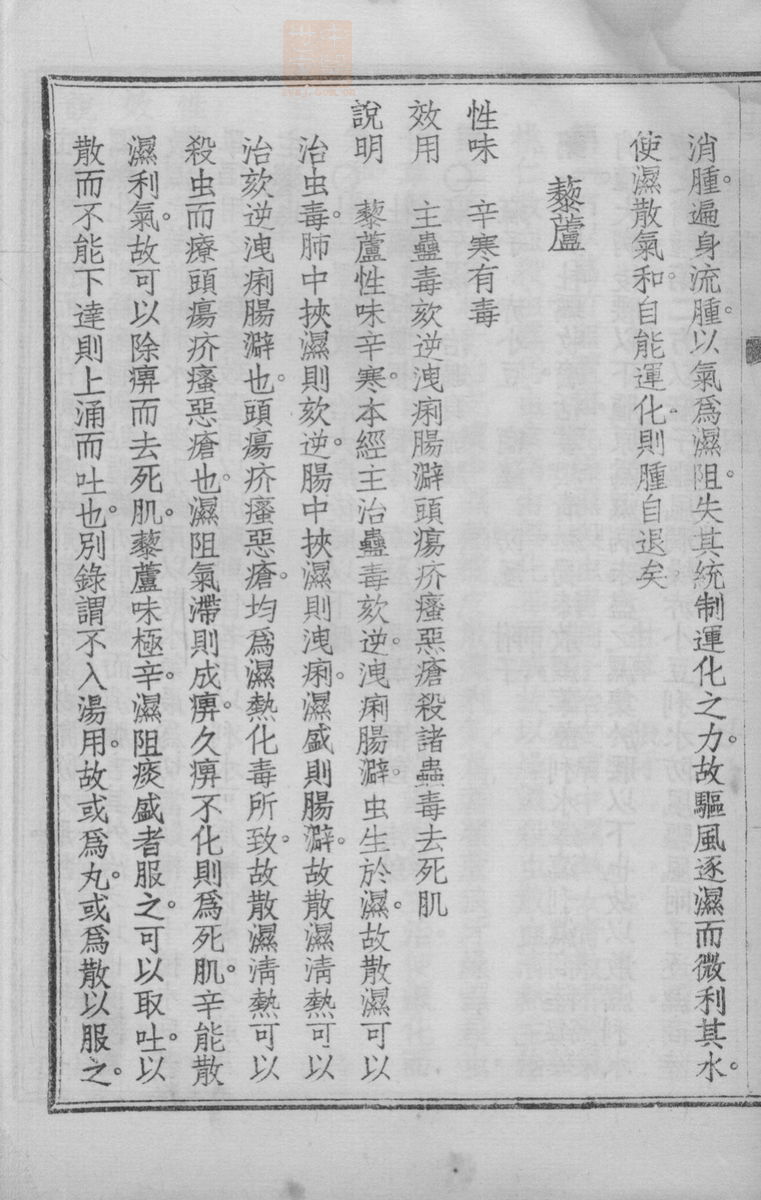 消腫。遍身流腫。以氣爲濕阻。失其統制運化之力。故驅風逐濕而微利其水。
使濕散氣和。自能運化。則腫自退矣
藜蘆
性味　辛寒有毒
效用　主蠱毒欬逆洩痢腸澼頭瘍疥瘙惡瘡殺諸蟲毒去死肌
說明　藜蘆性味辛寒。本經主治蠱毒欬逆。洩痢腸澼。虫生於濕。故散濕可以
治虫毒。肺中挾濕則欬逆。腸中挾濕則洩痢。濕盛則腸澼。故散濕淸熱可以
治欬逆洩痢腸澼也。頭瘍疥瘙惡瘡。均爲濕熱化毒所致。故散濕淸熱可以
殺虫而療頭瘍疥瘙惡瘡也。濕阻氣滯則成痹。久痹不化則爲死肌。辛能散
濕利氣。故可以除痹而去死肌。藜蘆味極辛。濕阻痰盛者服之。可以取吐。以
散而不能下達則上涌而吐也。別錄謂不入湯用。故或爲丸。或爲散以服之。